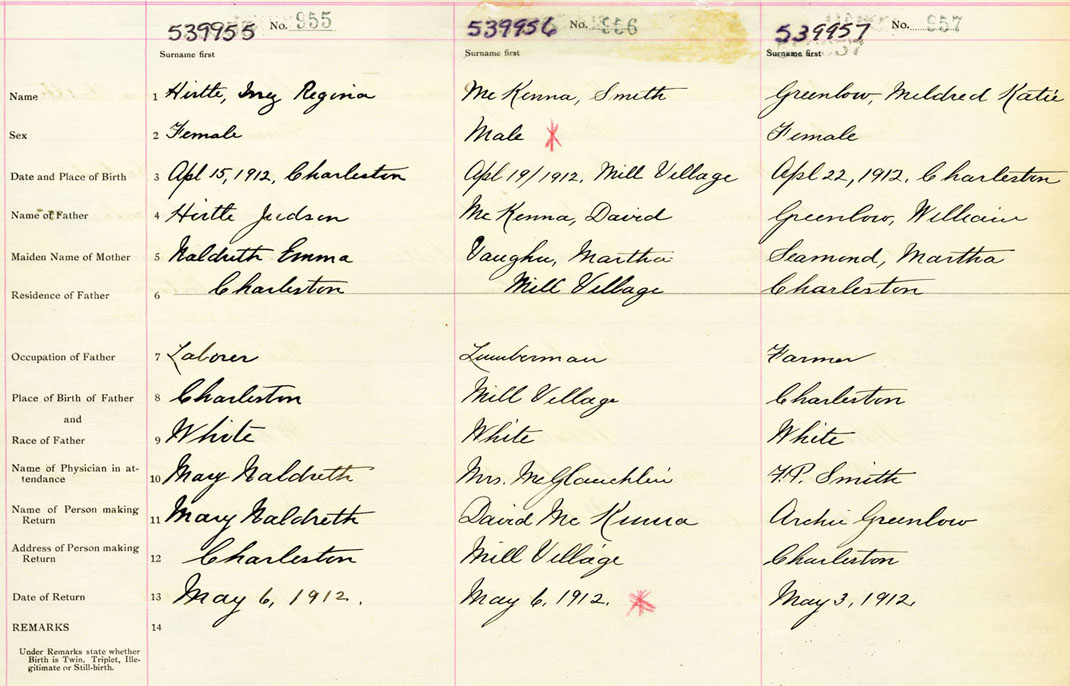 539955 No. 955 539956 No. 956 539957 No. 957
Surname first Surname first Surname first
Name 1 Hirtle, Inez Regina Mc Kenna, Smith Greenlow, Mildred Katie
Sex 2 Female Male Female
Date and Place of Birth 3 Apl 15, 1912, Charleston Apl 19/1912, Mill Village Apl 22, 1912, Charleston
Name of Father 4 Hirtle Judson Mc Kenna, David Greenlow, William
Maiden Name of Mother 5 Naldreth Emma Vaughn, Martha Seamond, Martha
Residence of Father 6 Charleston Mill Village Charleston
Occupation of Father 7 Laborer Lumberman Farmer
Place of Birth of Father 8 Charleston Mill Village Charleston
and
Race of Father 9 White White White
Name of Physician in at-
tendance 10 May Naldreth Mrs. McGlauchlin F.P. Smith
Name of Person making
Return 11 Mary Naldreth David Mc Kenna Archie Greenlow
Address of Person making
Return 12 Charleston Mill Village Charleston
Date of Return 13 May 6, 1912. May 6, 1912. May 3, 1912,
REMARKS 14
Under Remarks state whether
Birth is Twin, Triplet, Ille-
gitimate or Still-birth.